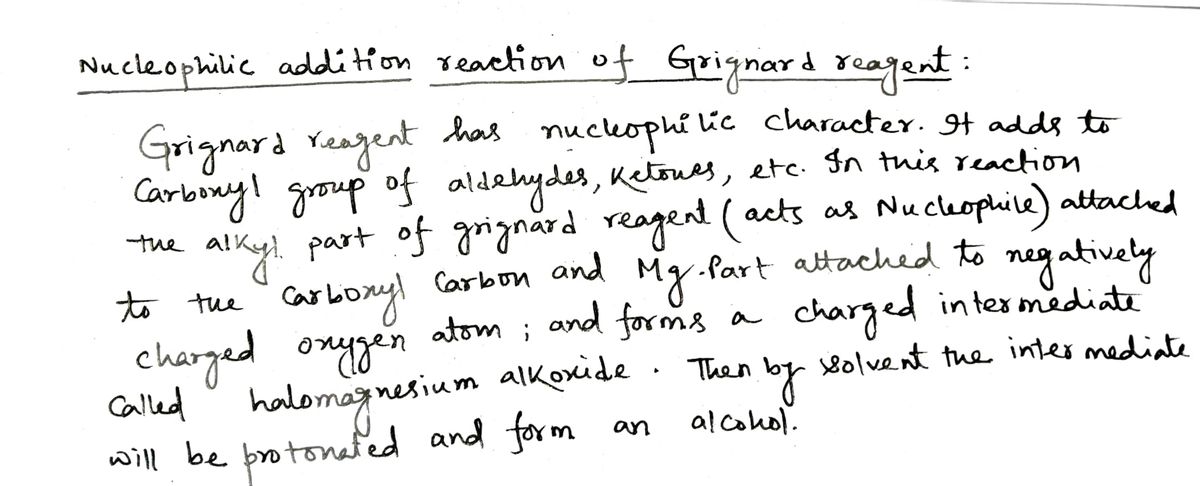 Nucleophilic addition reaction of Grignard reagent :
Grignard reagent has nucleophilic character. It adds to
Carbonyl group of aldehydes, Ketones, etc. In this reaction
the alkyl part of grignard reagent (acts as Nucleophile) attached
to the Carbonyl Carbon and Mg-Part attached to negatively
charged oxygen atom ; and forms a charged intermediate
Called halomagnesium alkoxide. Then by solvent the intermediate
will be protonated and form an alcohol.